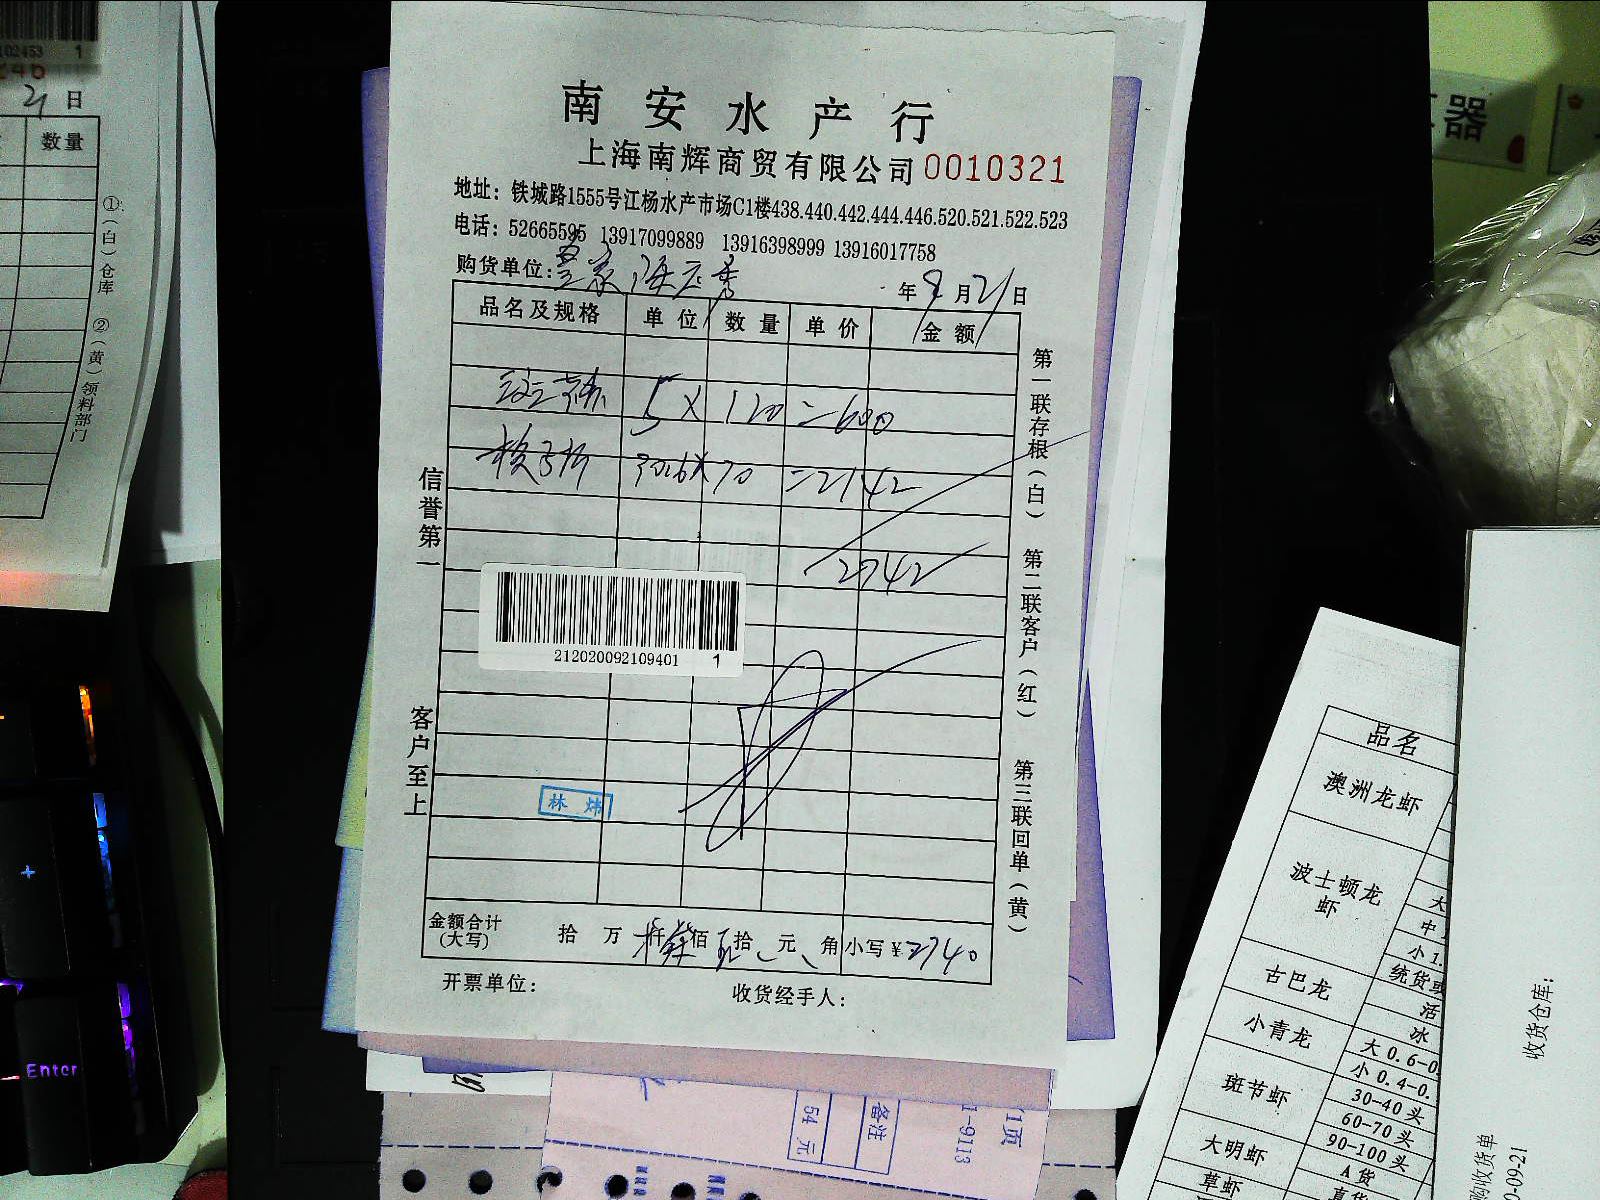 102453 1
246
21 日
数量
①(白)仓库 ②(黄)领料部门
南安水产行
上海南辉商贸有限公司 0010321
地址：铁城路1555号江杨水产市场C1楼438.440.442.444.446.520.521.522.523
电话：52665595 13917099889 13916398999 13916017758
购货单位：
年 9 月 21 日
品名及规格 单位 数量 单价 金额
5 X 120 =600
X 70 =2142
2742
212020092109401 1
林炜
金额合计(大写) 拾 万 仟 佰 拾 元 角 小写¥2740
开票单位： 收货经手人：
信誉第一 客户至上
第一联存根(白) 第二联客户(红) 第三联回单(黄)
器
品名
澳洲龙虾
波士顿龙虾
大
中
小 1.
统货或
古巴龙
活
冰
小青龙
大 0.6-0
小 0.4-0.
斑节虾
30-40头
60-70头
90-100头
大明虾
A 货
草虾
收货仓库：
购收货单
0-09-21
Enter
+
54 元
备注
1-9113
/1页